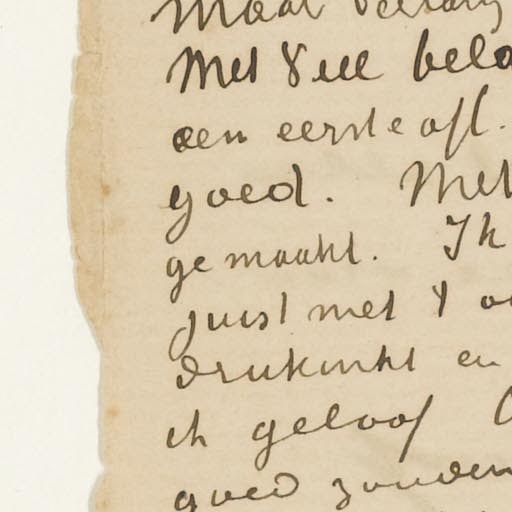 maar
Met veel bela
een eerste afl.
goed. Met
gemaakt. Ik
juist met
drukinkt en
ik geloof
goed zouden